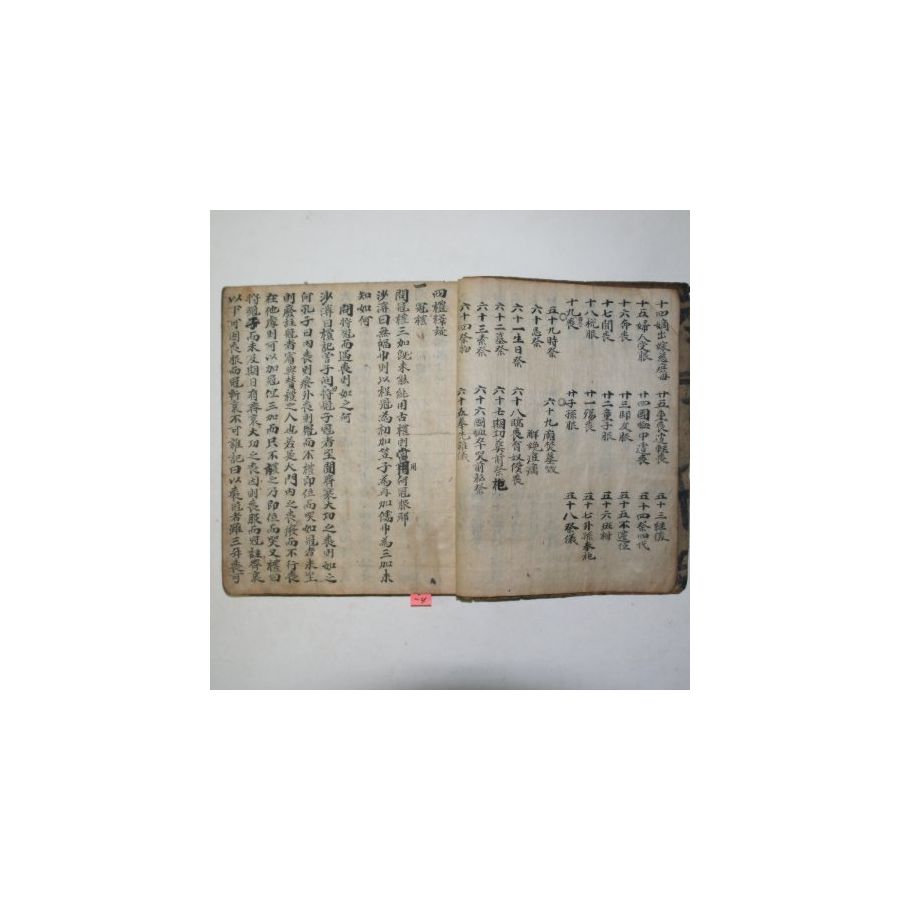 十四嫡出嫁慈庶母 廿五重喪遭輕喪 五十三
十五婦人受服 廿四國恤中遭喪 五十四祭四代
十六命喪 廿三師友服 五十五不遷位
十七聞喪 廿二童子服 五十六班祔
十八稅服 廿一殤喪 五十七外孫奉祀
十九喪 廿子孫服 五十八祭儀
五十九時祭 六十九
六十忌祭
六十一生日祭 六十八臨喪
六十二墓祭 六十七期功
六十三素祭 六十六國恤卒哭前私祭
六十四祭物 六十五奉先雜儀
四禮釋疑
一冠禮
問冠禮三加旣未能用古禮則當用何冠服耶
沙溪曰無幅巾則以程冠爲初加笠子爲再加儒巾爲三加未
知如何
問將冠而遇喪則如之何
沙溪曰禮記曾子問將冠子冠者至聞齊衰大功之喪則如之
何孔子曰內喪則廢外喪則冠而不禮卽位而哭如冠者未至
則廢註冠者賓與贊禮之人也若是大門內之喪廢而不行喪
在他處則可以加冠但三加而只不禮之乃卽位而哭又禮曰
將冠子而未及期日有齊衰大功之喪因則喪服而冠註齊衰
以下可因喪服而冠斬衰不可雜記曰以喪冠者雖三年喪可